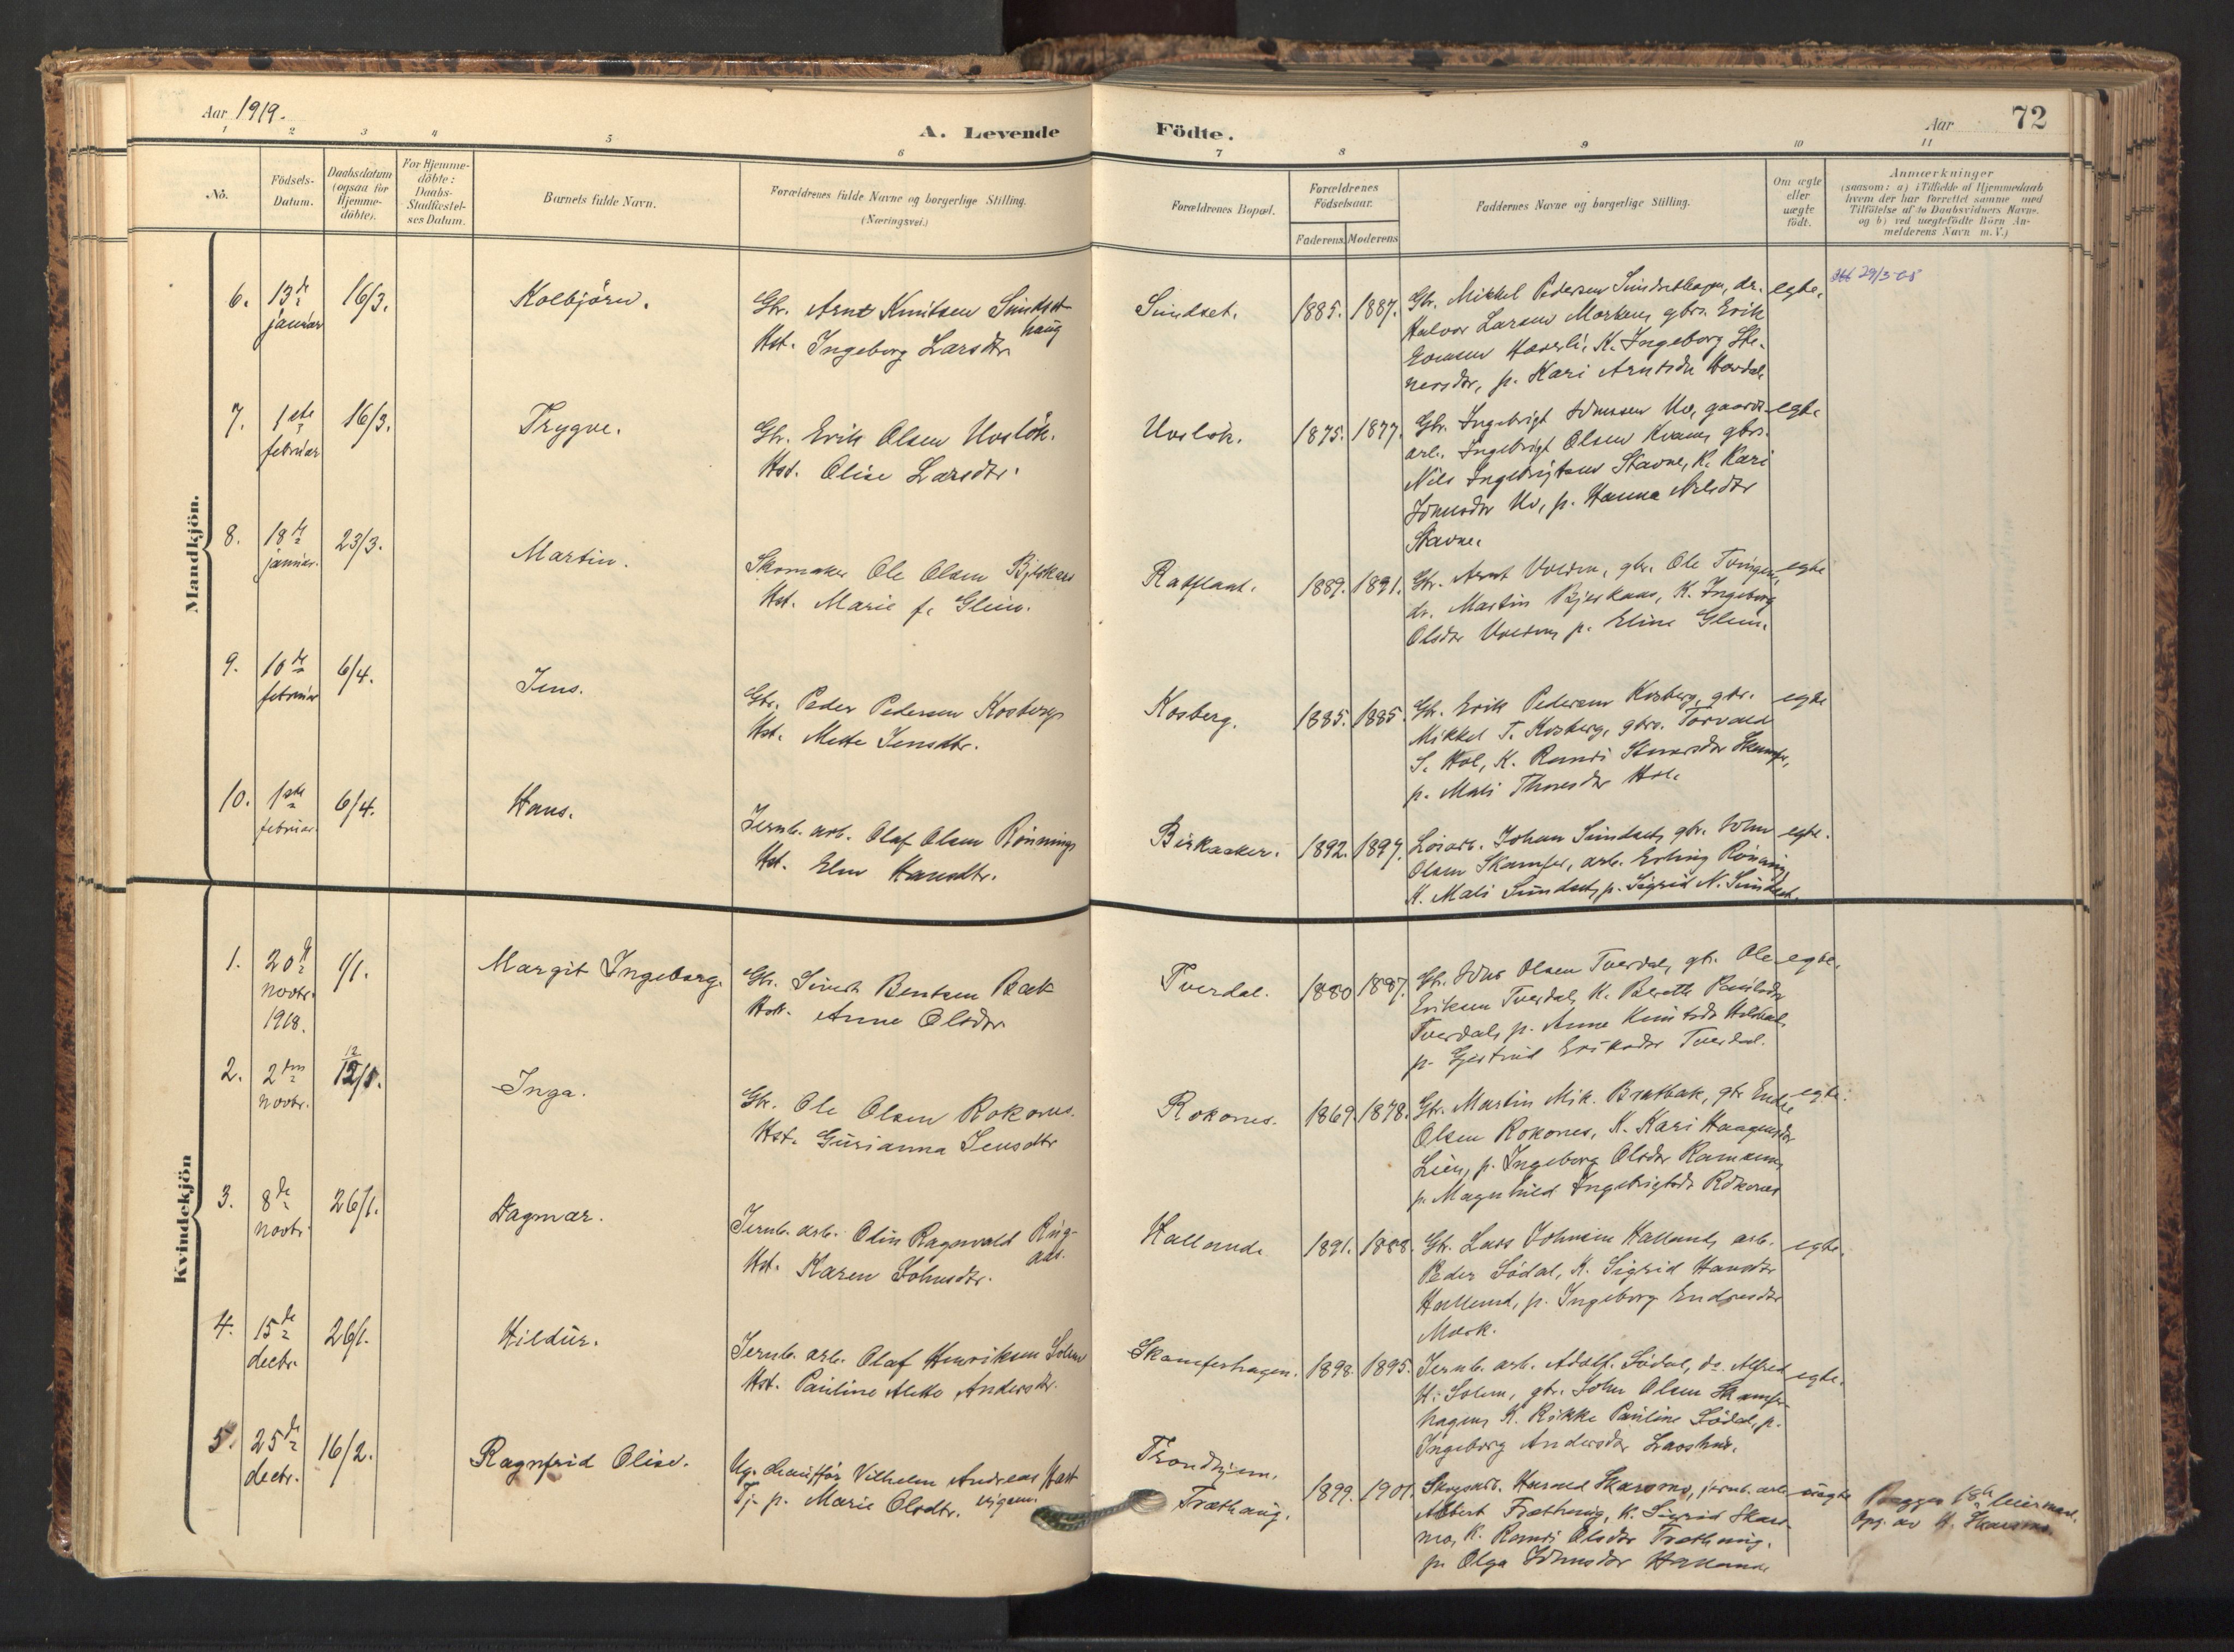 Aar 1919.
A. Levende
Födte.
Aar
72
1 2 3 4 5 6 7 8 9 10 11
No.
Födsels-
Datum.
Daabsdatum
(ogsaa for
Hjemme-
döbte).
For Hjemme-
döbte:
Daabs-
Stadfæstel-
ses Datum.
Barnets fulde Navn.
Forældrenes fulde Navne og borgerlige Stilling.
(Næringsvei.)
Forældrenes Bopæl.
Forældrenes
Födselsaar.
Faderens. Moderens
Faddernes Navne og borgerlige Stilling.
Om ægte
eller
uægte
födt.
Anmærkninger
(saasom: a) i Tilfælde af Hjemmedaab
hvem der har forrettet samme med
Tilföielse af to Daabsvidners Navne.
og b) ved uægtefödte Börn An-
melderens Navn m. V.)
Mandkjön.
6. 13de januar 16/3. Kolbjörn.
Gbr. Arnt Knutsen Sundset-
haug
Hst. Ingeborg Larsdtr.
Sundset. 1885. 1887.
Gbr. Mikkel Pedersen Sundsethagen, dr.
Halvor Larsen Morken, gbrs. Erik
Haverli, K. Ingeborg Ste-
nersdtr, p. Kari Arntsdtr
egte.
29/3-05
7. 1ste februar 16/3. Trygve.
Gbr. Erik Olsen Uvslök.
Hst. Olise Larsdtr.
Uvslök. 1875. 1877.
Gbr. Ingebrigt Johnsen Uv, gaards-
arb. Ingebrigt Olsen Kvam, gbrs.
Nils Ingebrigtsen Stavne, K. Kari
Johnsdtr Uv, p. Hanna Nilsdtr
Stavne.
egte
8. 18de januar. 23/3. Martin.
Skomaker Ole Olsen Bjerkaas
Hst. Marie f. Glein.
1889. 1891.
Gbr. Arnt Volden, gbr. Ole
dr. Martin Bjerkaas, K. Ingeborg
Olsdtr Volden, p. Eline Glein.
egte
9. 10de februar 6/4. Jens.
Gbr. Peder Pedersen Kosberg
Hst. Mette Jensdtr.
Kosberg. 1885. 1885.
Gbr. Erik Pedersen Kosberg, gbr.
Mikkel T. Kosberg, gbrs. Torvald
S. Hol, K. Randi
p. Mali Thoresdtr Hol.
egte
10. 1ste februar 6/4. Hans.
Jernb. arb. Olaf Olsen Rönning
Hst. Elen Hansdtr.
Birkaaker. 1892. 1897.
Johan Sundset, gbr. John
Olsen Skamfer, arb. Erling Rönning
K. Mali Sundset, p. Sigrid N. Sundset.
egte.
Kvindekjön
1. 20de novbr. 1918. 1/1. Margit Ingeborg.
Gbr. Sivert Bentsen Bak
Hst. Anne Olsdtr
Tverdal. 1880 1887.
Gbr. John Olsen Tverdal, gbr. Ole
Eriksen Tverdal, K. Beret Paulsdtr
Tverdal, p. Anne Knutsdtr
p. Gjertrud Eriksdtr Tverdal.
egte.
2. 2den novbr. 12/1. Inga.
Gbr. Ole Olsen Rokones.
Hst. Gurianna Jensdtr
Rokones. 1869. 1878.
Gbr. Martin Mik. Bratbak, gbr Endre
Olsen Rokones, K. Kari Haagensdtr
Lien, p. Ingeborg Olsdtr
p. Magnhild Ingebrigtsdtr Rokones
egte.
3. 8de novbr. 26/1. Dagmar.
Jernb. arb. Odin Ragnvald Ring-
aas.
Hst. Karen Johnsdtr.
Halland. 1891. 1888.
Gbr. Lars Johnsen Halland, arb.
Peder Södal, K. Sigrid Hansdtr
Halland, p. Ingeborg Endresdtr
Mærk.
egte.
4. 15de decbr. 26/1. Hildur.
Jernb. arb. Olaf Henriksen Solem
Hst. Pauline Alette Andersdtr.
Skamferhagen. 1898. 1895.
Jernb. arb. Adolf Södal, do. Alfred
H. Solem, gbr. John Olsen Skamfer-
hagen, K. Rikke Pauline Södal, p.
Ingeborg Andersdtr
egte.
5. 25de decbr. 16/2. Ragnfrid Olise.
Ug. chauffør Vilhelm Andreas
Tj. p. Marie Olsdtr.
Trondhjem.
Træthaug.
1899. 1901.
Skogsarb. Harald Skaromo, jernb. arb
Albert Træthaug, K. Sigrid Skaro-
mo, K. Randi Olsdtr Træthaug.
p. Olga Johnsdtr Halland
uegte